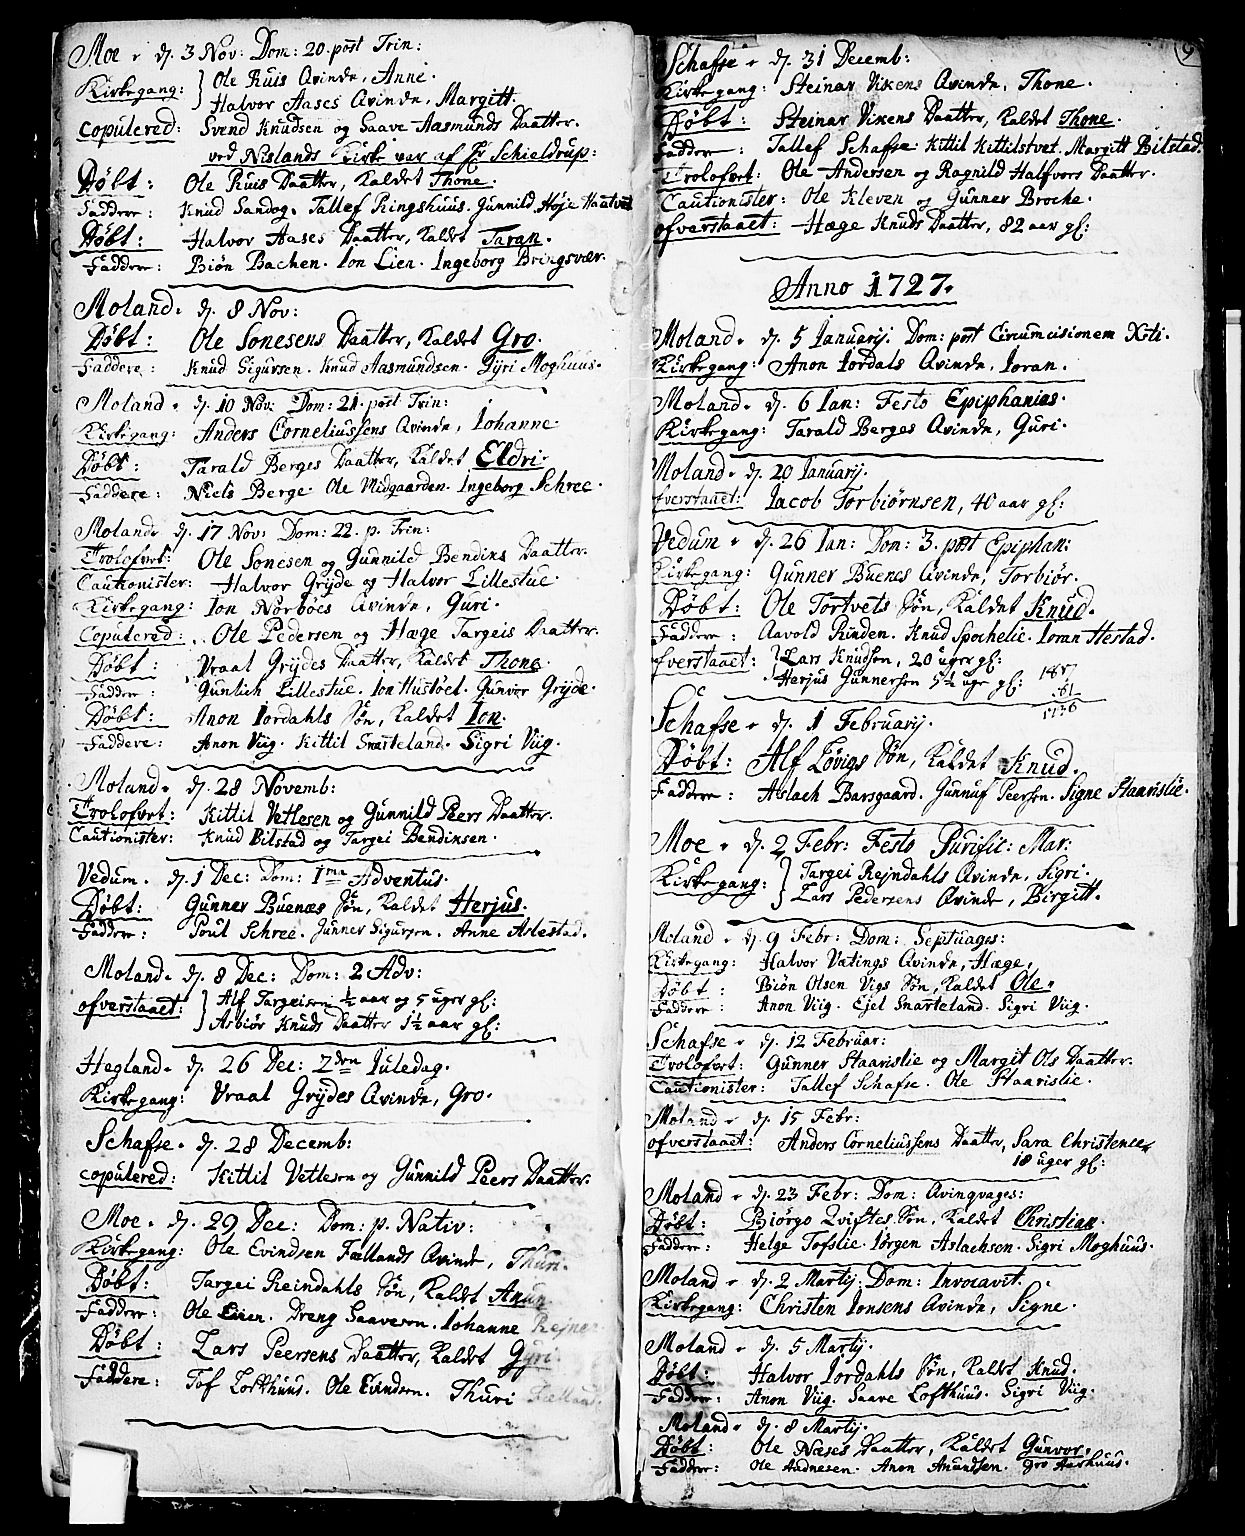 Moe d. 3 Nov: Dom: 20. post Trin:
Kirkegang: Ole Ruis Qvinde, Anne.
Halvor Aases Qvinde, Margitt.
Copulered: Svend Knudsen og Saave Aasmunds Daatter.
ved Nislands Kirke var af Hr Schieldrup:
Døbt: Ole Ruis Daatter, kaldet Thone.
Faddere: Knud Sandog. Tallef Ringshuus. Gunnild Høje
Døbt: Halvor Aases Daatter, kaldet Taran.
Faddere: Biøn Bachen. Ion Lien. Ingeborg Bringsvær.
Moland. d. 8 Nov:
Døbt: Ole Sonesens Daatter, kaldet Gro.
Faddere: Knud Sigursen. Knud Aasmundsen. Gyri Moghuus.
Moland. d. 10 Nov: Dom: 21. post Trin:
Kirkegang: Anders Corneliussens Qvinde, Iohanne
Døbt: Tarald Berges Daatter, kaldet Eldri.
Faddere: Niels Berge. Ole Midgaarden. Ingeborg Schree.
Moland d. 17 Nov: Dom: 22. p. Trin:
Trolofvet: Ole Sonesen og Gunnild Bendiks Daatter.
Cautionister: Halvor Gryde og Halvor Lillestue.
Kirkegang: Ion Norböes Qvinde, Guri.
Copulered: Ole Pedersen og Hæge Targeis Daatter.
Døbt: Vraal Grydes Daatter, kaldet Thone.
Faddere: Guntich Lillestue. Ion Hustøel. Gunver Gryde.
Døbt: Anon Iordahls Søn, kaldet Ion.
Faddere: Anon Viig. Kittil Snarteland. Sigri Viig.
Moland. d. 28 Novemb:
Trolofvet: Kittil Vetlesen og Gunnild Peers Daatter.
Cautionister: Knud Bilstad og Targei Bendiksen.
Vedum. d. 1 Dec: Dom: 1ma Adventus.
Døbt: Gunner Buenæs Søn, kaldet Herjus.
Faddere: Poul Schree. Gunner Sigursen. Anne Aslestad.
Moland. d. 8 Dec: Dom: 2 Adv:
ofverstaaet: Alf Targeisen ½ aar og 5 uger gl:
Asbiør Knuds Daatter 1½ aar gl:
Hegland. d. 26 Dec: 2den Iuledag.
Kirkegang: Vraal Grydes Qvinde, Gro.
Schafse. d. 28 Decemb:
Copulered: Kittil Vetlesen og Gunnild Peers Daatter.
Moe. d. 29 Dec: Dom: p. Nativ:
Kirkegang: Ole Evindsen Fællands Qvinde, Thuri.
Døbt: Targei Reindahls Søn, kaldet Anun
Faddere: Ole Eiien. Dreng Saavesen. Iohanne Rejne
Døbt: Lars Peersens Daatter, kaldet Gyri.
Faddere: Tof Lofthuus. Ole Evindsen. Thuri Felland.
9
Schafse d. 31 Decemb:
Kirkegang: Steinar Vixens Qvinde, Thone.
Døbt: Steinar Vixens Daatter, kaldet Thone.
Faddere: Tallef Schafse. Kittil Kittilstvet. Margitt Bilstad.
Trolofvet: Ole Andersen og Ragnild Halfvors Daatter.
Cautionister: Ole Kleven og Gunner Broche.
ofverstaaet: Hæge Knuds Daatter, 82 aar gl:
Anno 1727.
Moland. d. 5 Ianuarij. Dom: post Circumcisionem Xsti.
Kirkegang: Anon Iordals Qvinde, Ioran.
Moland. d. 6 Ian: Festo Epiphanias.
Kirkegang: Tarald Berges Qvinde, Guri.
Moland. d. 20 Ianuarij.
ofverstaaet: Iacob Torbiørnsen, 40 aar gl:
Vedum d. 26 Ian: Dom: 3. post Epiphan:
Kirkegang: Gunner Buenes Qvinde, Torbiør.
Døbt: Ole Tortvets Søn, kaldet Knud.
Faddere: Aavold Rinden. Knud Spochelie. Ioran Hestad.
ofverstaaet: Lars Knudsen, 20 uger gl:
Herjus Gunnersen 5½ uge gl:
Schafse d. 1 Februarij.
Døbt: Alf Løvigs Søn, kaldet Knud.
Faddere: Aslach Barsgaard. Gunnuf Peersen. Signe Haarislie.
Moe d. 2 Febr: Festo Purific: Mar:
Kirkegang: Targei Rejndahls Qvinde, Sigri.
Lars Pedersens Qvinde, Birgitt.
Moland d. 9 Febr: Dom: Septuages:
Kirkegang: Halvor Vetings Qvinde, Hæge.
Døbt: Biøn Olsen Vigs Søn, kaldet Ole.
Faddere: Anon Viig. Ejel Snarteland. Sigri Viig.
Schafse d. 12 Februar:
Trolofvet: Gunner Haarislie og Margit Ols Daatter.
Cautionister: Tallef Schafse. Ole Haarislie.
Moland d. 15 Febr:
ofverstaaet: Anders Corneliussens Daatter, Sara Christence
18 uger gl:
Moland d. 23 Febr: Dom: Qvinqvages:
Døbt: Biörgo Qviftes Søn, kaldet Christien.
Faddere: Helge Tofslie. Iørgen Aslachsen. Sigri Moghuus.
Moland d. 2 Martij. Dom: Invocavit.
Kirkegang: Christen Ionsens Qvinde, Signe.
Moland d. 5 Martij.
Døbt: Halvor Iordahls Søn, kaldet Knud.
Faddere: Anon Viig. Saave Lofthuus. Sigri Viig.
Moland d. 8 Martij.
Døbt: Ole Næses Daatter, kaldet Gunvor.
Faddere: Ole Aadnesen. Anon Anundsen. Gro Aarhuus.